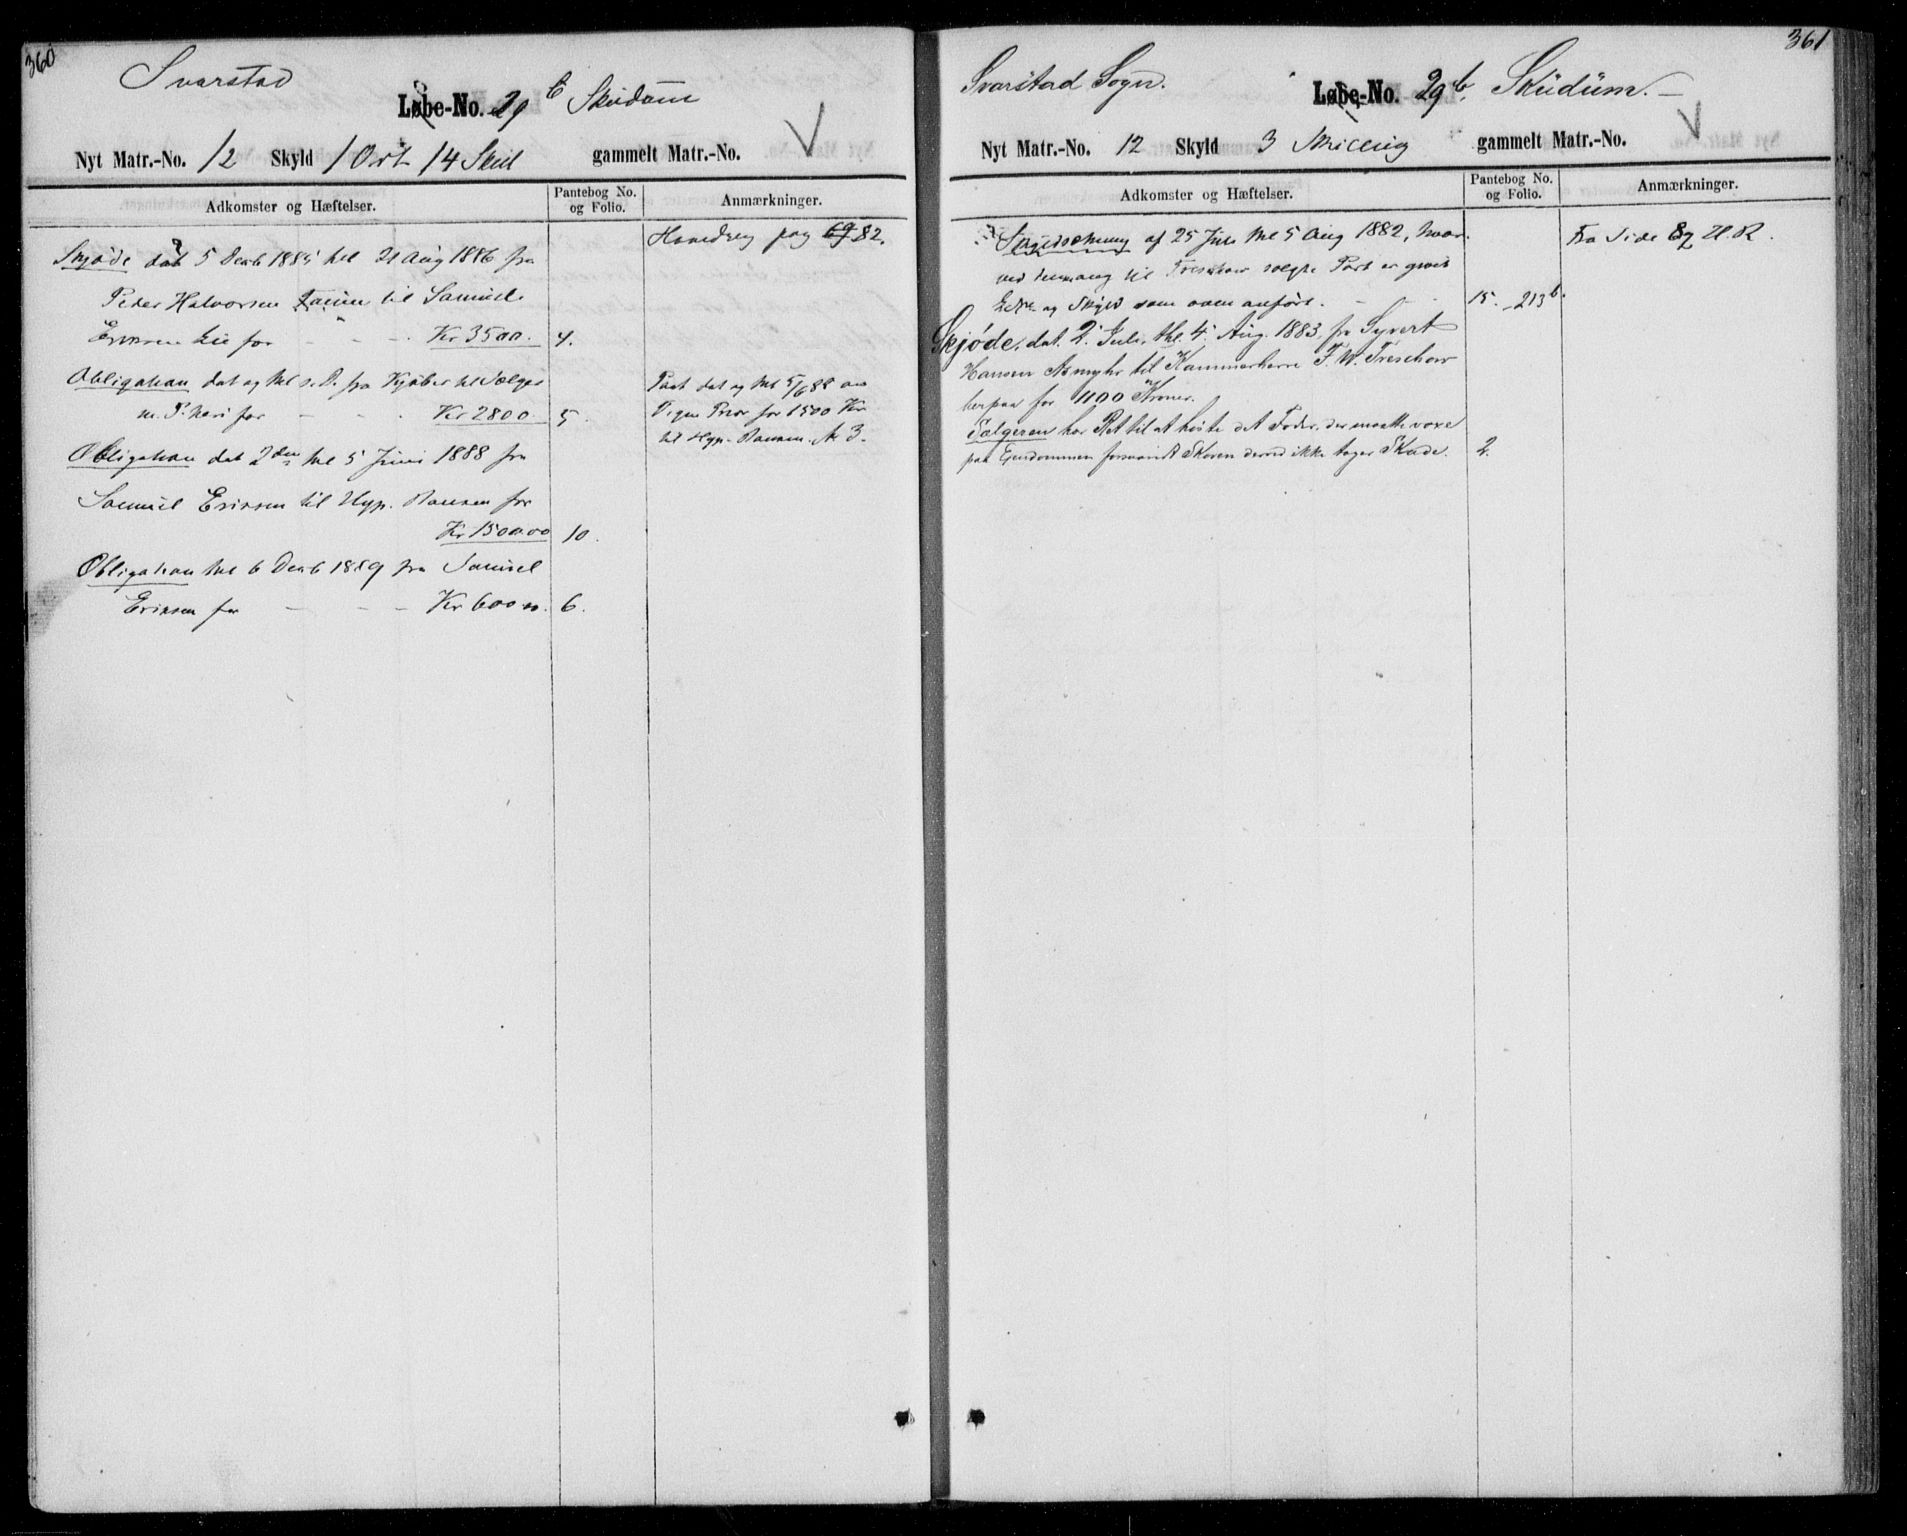 360
Svarstad
Løbe-No. 29 b Skudum
Nyt Matr.-No. 12 Skyld 1 Ort 14 Skil gammelt Matr.-No.
Adkomster og Hæftelser.
Pantebog No. og Folio.
Anmærkninger.
Hovedreg pag 69 82.
Skjøde dat 5 Decb 1885 thl 21 Aug 1886 fra
Peder Halvorsen til Samuel
Eriksen Lie for - - - Kr 3500. 4.
Obligation dat og thl s. D. fra Kjøber til Sælger
m. P. heri for - - - Kr 2800. 5.
Obligation dat 2den thl 5 Juni 1888 fra
Samuel Eriksen til Hyp. Banken for
Kr 1500.00 10.
Obligation thl 6 Decb 1889 fra Samuel
Eriksen for - - - Kr 600.00. 6.
Paat dat og thl 5/6 88 om
Vigen Prior for 1500 Kr
til Hyp. Banken. No 3.
361
Svarstad Sogn.
Løbe-No. 29 b. Skudum.
Nyt Matr.-No. 12 Skyld 3 Skilling gammelt Matr.-No.
Adkomster og Hæftelser.
Pantebog No. og Folio.
Anmærkninger.
Skyldsetning af 25 Juli thl 5 Aug 1882, hvor-
ved til Treschow solgte Part er givet
og Skyld som oven anført. - - 15. 213b.
Fra Side 89 H. R.
Skjøde, dat. 2. Juli, thl. 4. Aug. 1883 fr Syvert
Hansen Aasmyhr til Kammerherre F. W. Treschow
herpaa for 1100 Kroner.
Sælgeren har Ret til at høste det Foder, der maatte voxe
paa Eiendommen forsaavidt Skoven derved ikke tager Skade. 2.